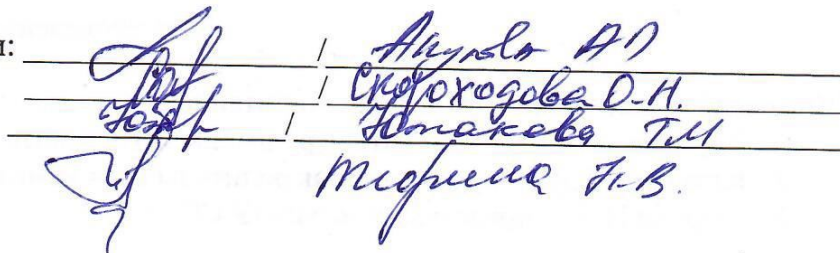 и: / Акулова АП
/ Скороходова О.Н.
/ Южакова ТМ
Тюрина Н.В.